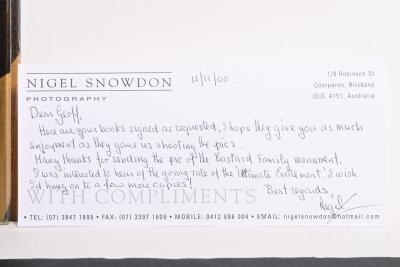 NIGEL SNOWDON
PHOTOGRAPHY
13/11/00.
1/8 Robinson St
Coorparoo, Brisbane
QLD, 4151, Australia
Dear Geoff,
Here are your books signed as requested, I hope they give you as much
enjoyment as they gave us shooting the pics.
Many thanks for sending the pic of the Bastard Family monument.
I was interested to hear of the going rate of the 'Ultimate Excitement'. I wish
I'd hung on to a few more copies!
Best regards
Nigel
WITH COMPLIMENTS
• TEL: (07) 3847 1899 • FAX: (07) 3397 1609 • MOBILE: 0412 886 004 • EMAIL: nigelsnowdon@hotmail.com